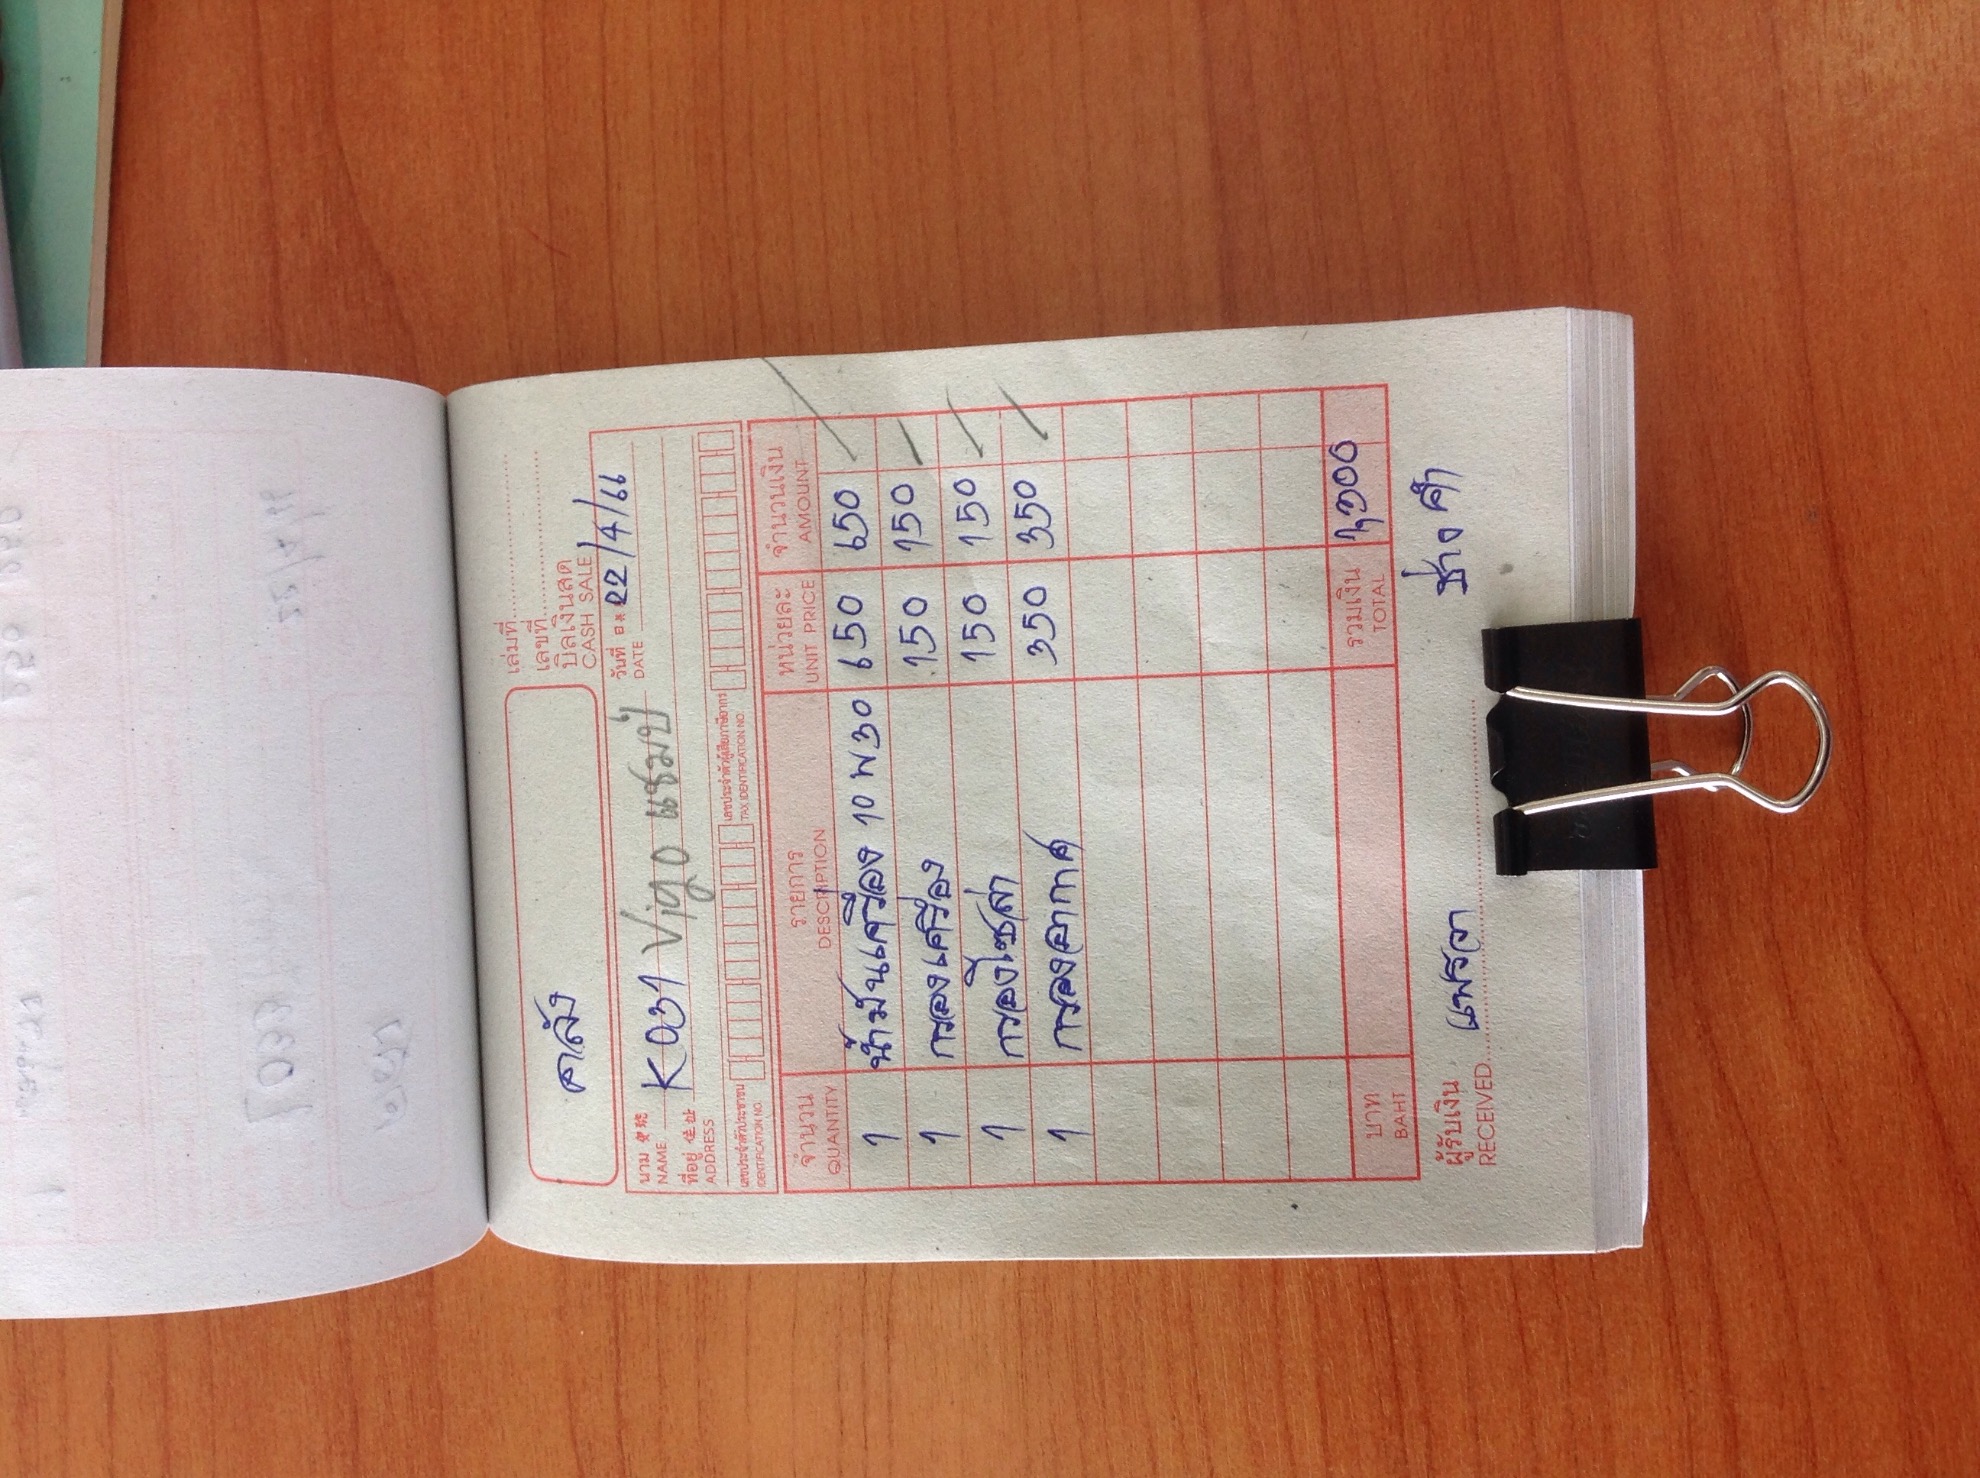 เล่มที่
เลขที่
คลัง
บิลเงินสด
CASH SALE
นาม 寶號 K031 Vigo แชมป์ วันที่ 日期 22/4/66
NAME DATE
ที่อยู่ 住址
ADDRESS
เลขประจำตัวประชาชน เลขประจำตัวผู้เสียภาษีอากร
IDENTIFICATION NO. TAX IDENTIFICATION NO.
จำนวน รายการ หน่วยละ จำนวนเงิน
QUANTITY DESCRIPTION UNIT PRICE AMOUNT
1 น้ำมันเครื่อง 10 W30 650 650
1 กรองเครื่อง 150 150
1 กรองโซล่า 150 150
1 กรองอากาศ 350 350
บาท รวมเงิน 1,300
BAHT TOTAL
ผู้รับเงิน แพรวา ช่างคำ
RECEIVED